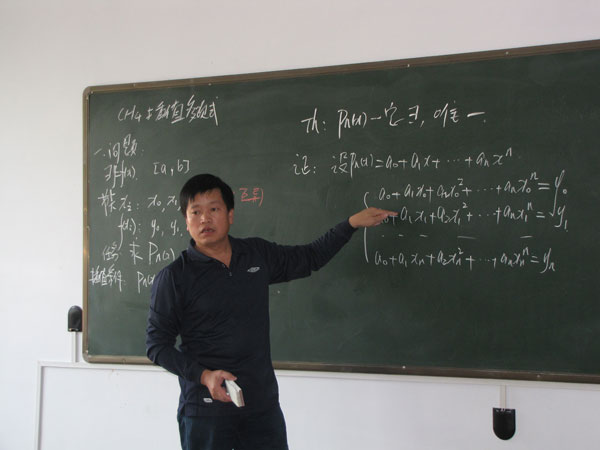 CH4 插值多项式
一、问题:
[a, b]
x₀, x₁
f(xᵢ): y₀, y₁
互异)
求 Pn(x)
插值条件: Pn(x
Th: Pn(x)一定∃, 唯一.
证: 设Pn(x)=a₀+a₁x+⋯+aₙxⁿ
a₀+a₁x₀+a₂x₀²+⋯+aₙx₀ⁿ=y₀
+a₁x₁+a₂x₁²+⋯+aₙx₁ⁿ=y₁
a₀+a₁xₙ+a₂xₙ²+⋯+aₙxₙⁿ=yₙ